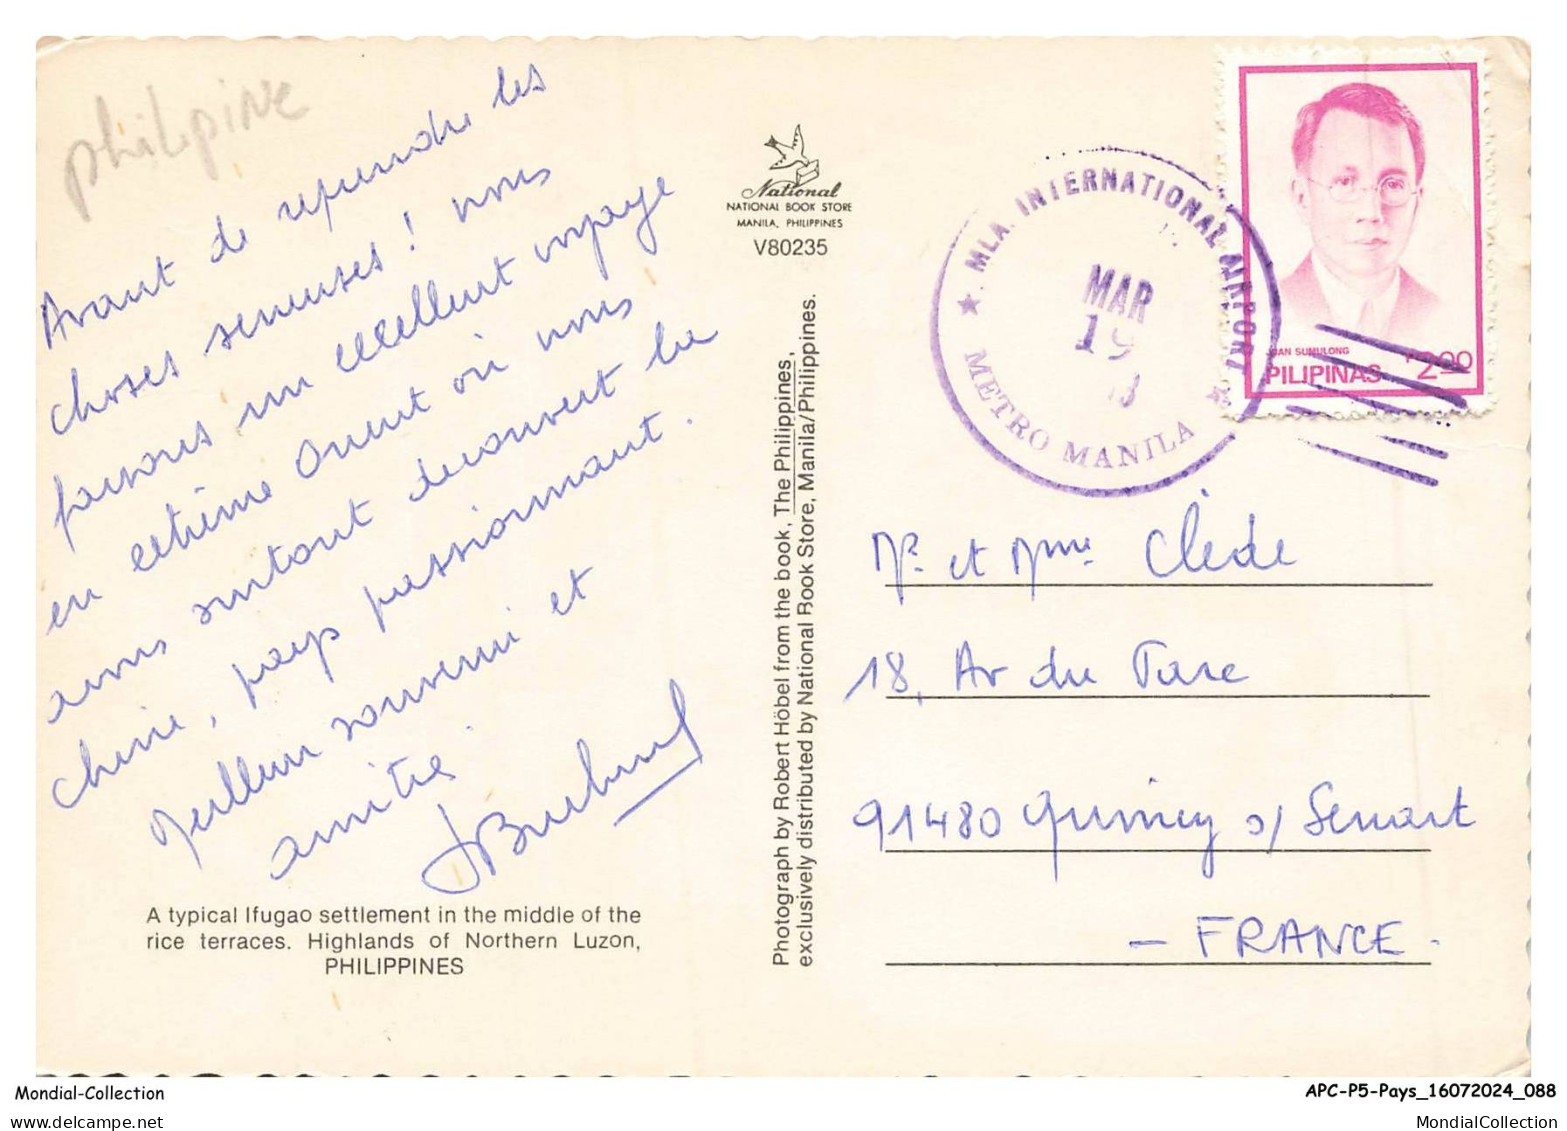 philipine
Avant de reprendre les
choses serieuses ! nous
faisons un excellent voyage
en extrême Orient où nous
avons surtout découvert la
chine, pays passionnant.
Meilleur souvenir et
amitié.
A typical Ifugao settlement in the middle of the
rice terraces. Highlands of Northern Luzon,
PHILIPPINES
National
NATIONAL BOOK STORE
MANILA, PHILIPPINES
V80235
Photograph by Robert Höbel from the book, The Philippines,
exclusively distributed by National Book Store, Manila/Philippines.
MLA. INTERNATIONAL AIRPORT
MAR
19
METRO MANILA
JUAN SUMULONG
PILIPINAS P2.00
Mr et Mme Clède
18, Av du Parc
91480 Quincy s/ Senart
- FRANCE -
Mondial-Collection
APC-P5-Pays_16072024_088
MONDIALCOLLECTION
MondialCollection